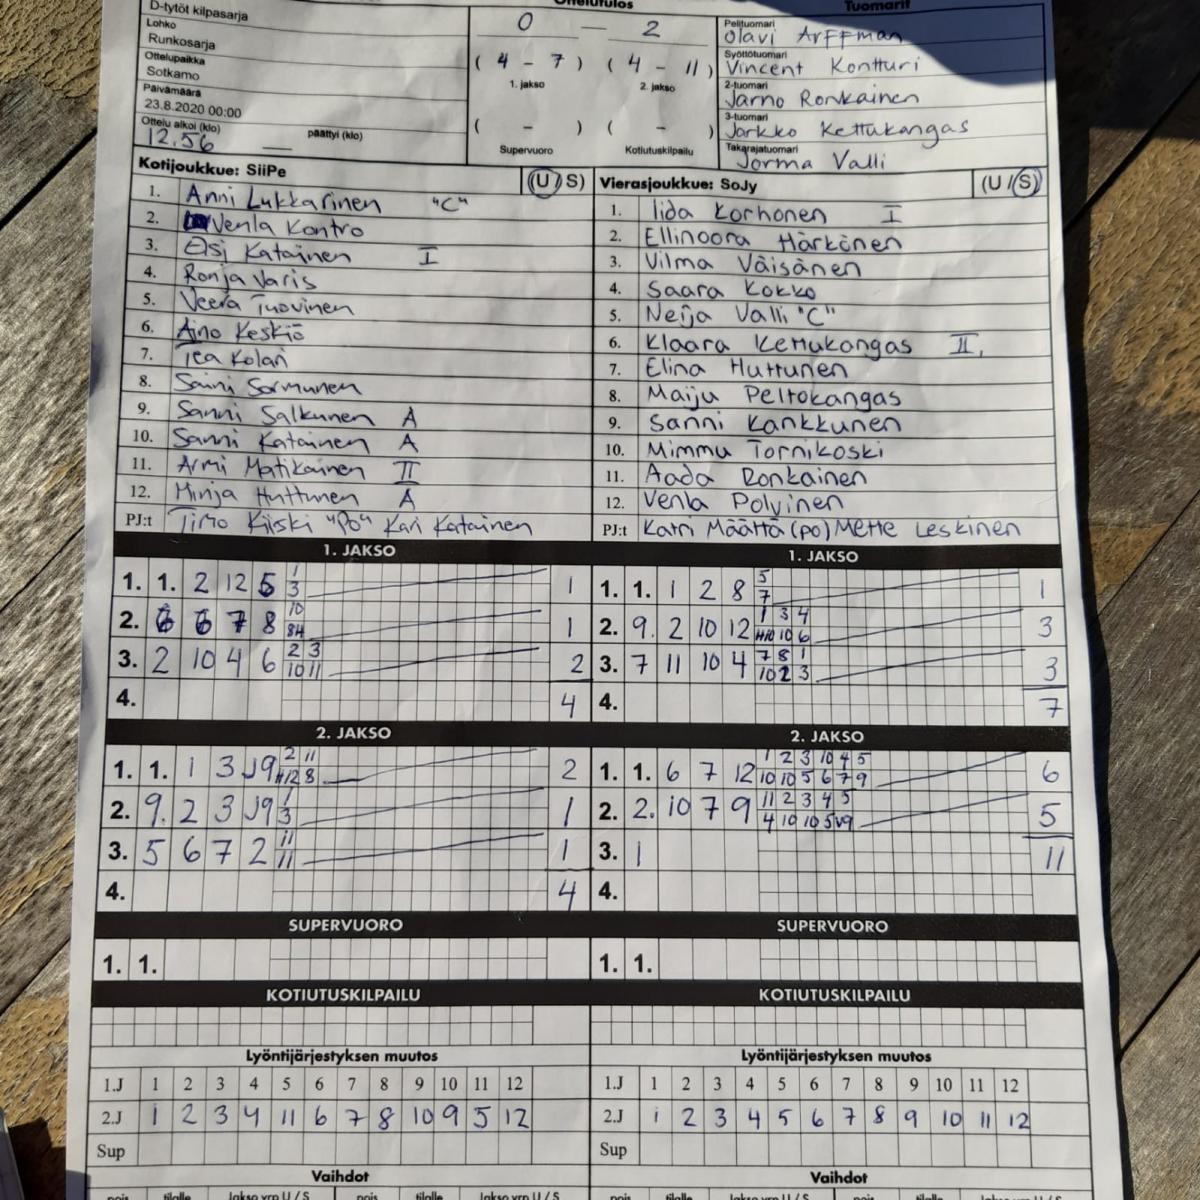 D-tytöt kilpasarja
Lohko
Runkosarja
Ottelupaikka
Sotkamo
Päivämäärä
23.8.2020 00:00
Ottelu alkoi (klo) 12.56 päättyi (klo)
Ottelutulos
0 — 2
( 4 - 7 ) ( 4 - 11 )
1. jakso 2. jakso
( - ) ( - )
Supervuoro Kotiutuskilpailu
Tuomarit
Pelituomari
Olavi Arffman
Syöttötuomari
Vincent Kontturi
2-tuomari
Jarno Ronkainen
3-tuomari
Jarkko Kettukangas
Takarajatuomari
Jorma Valli
Kotijoukkue: SiiPe (U / S)
1. Anni Lukkarinen "C"
2. Venla Kontro
3. Elsi Katainen I
4. Ronja Varis
5. Veera Tuovinen
6. Aino Keskiö
7. Tea Kolari
8. Saini Sormunen
9. Sanni Salkunen A
10. Sanni Katainen A
11. Armi Matikainen II
12. Minja Huttunen A
PJ:t Timo Kiiski "Po" Kari Katainen
Vierasjoukkue: SoJy (U / S)
1. Iida Korhonen I
2. Ellinoora Härkönen
3. Vilma Väisänen
4. Saara Kokko
5. Neija Valli "C"
6. Klaara Kettukangas II.
7. Elina Huttunen
8. Maiju Peltokangas
9. Sanni Kankkunen
10. Mimmu Tornikoski
11. Aada Ronkainen
12. Venla Polvinen
PJ:t Katri Määttä (po) Mette Leskinen
1. JAKSO
1. 1. 2 12 5 1 3 1
2. 6 6 7 8 10 84 1
3. 2 10 4 6 2 3 10 11 2
4. 4
1. JAKSO
1. 1. 1 2 8 5 7 1
2. 9. 2 10 12 1 3 4 10 10 6 3
3. 7 11 10 4 7 8 1 10 2 3 3
4. 7
2. JAKSO
1. 1. 1 3 J9 2 11 12 8 2
2. 9. 2 3 J9 1 3 1
3. 5 6 7 2 11 11 1
4. 4
2. JAKSO
1. 1. 6 7 12 1 2 3 10 4 5 10 10 5 6 7 9 6
2. 2. 10 7 9 11 2 3 4 5 4 10 10 5 9 5
3. 1 11
4.
SUPERVUORO
1. 1.
SUPERVUORO
1. 1.
KOTIUTUSKILPAILU
KOTIUTUSKILPAILU
Lyöntijärjestyksen muutos
1.J 1 2 3 4 5 6 7 8 9 10 11 12
2.J 1 2 3 4 11 6 7 8 10 9 5 12
Sup
Lyöntijärjestyksen muutos
1.J 1 2 3 4 5 6 7 8 9 10 11 12
2.J 1 2 3 4 5 6 7 8 9 10 11 12
Sup
Vaihdot
pois tilalle Jakso vrp U / S pois tilalle Jakso vrp U / S
Vaihdot
pois tilalle Jakso vrp U / S pois tilalle Jakso vrp U / S